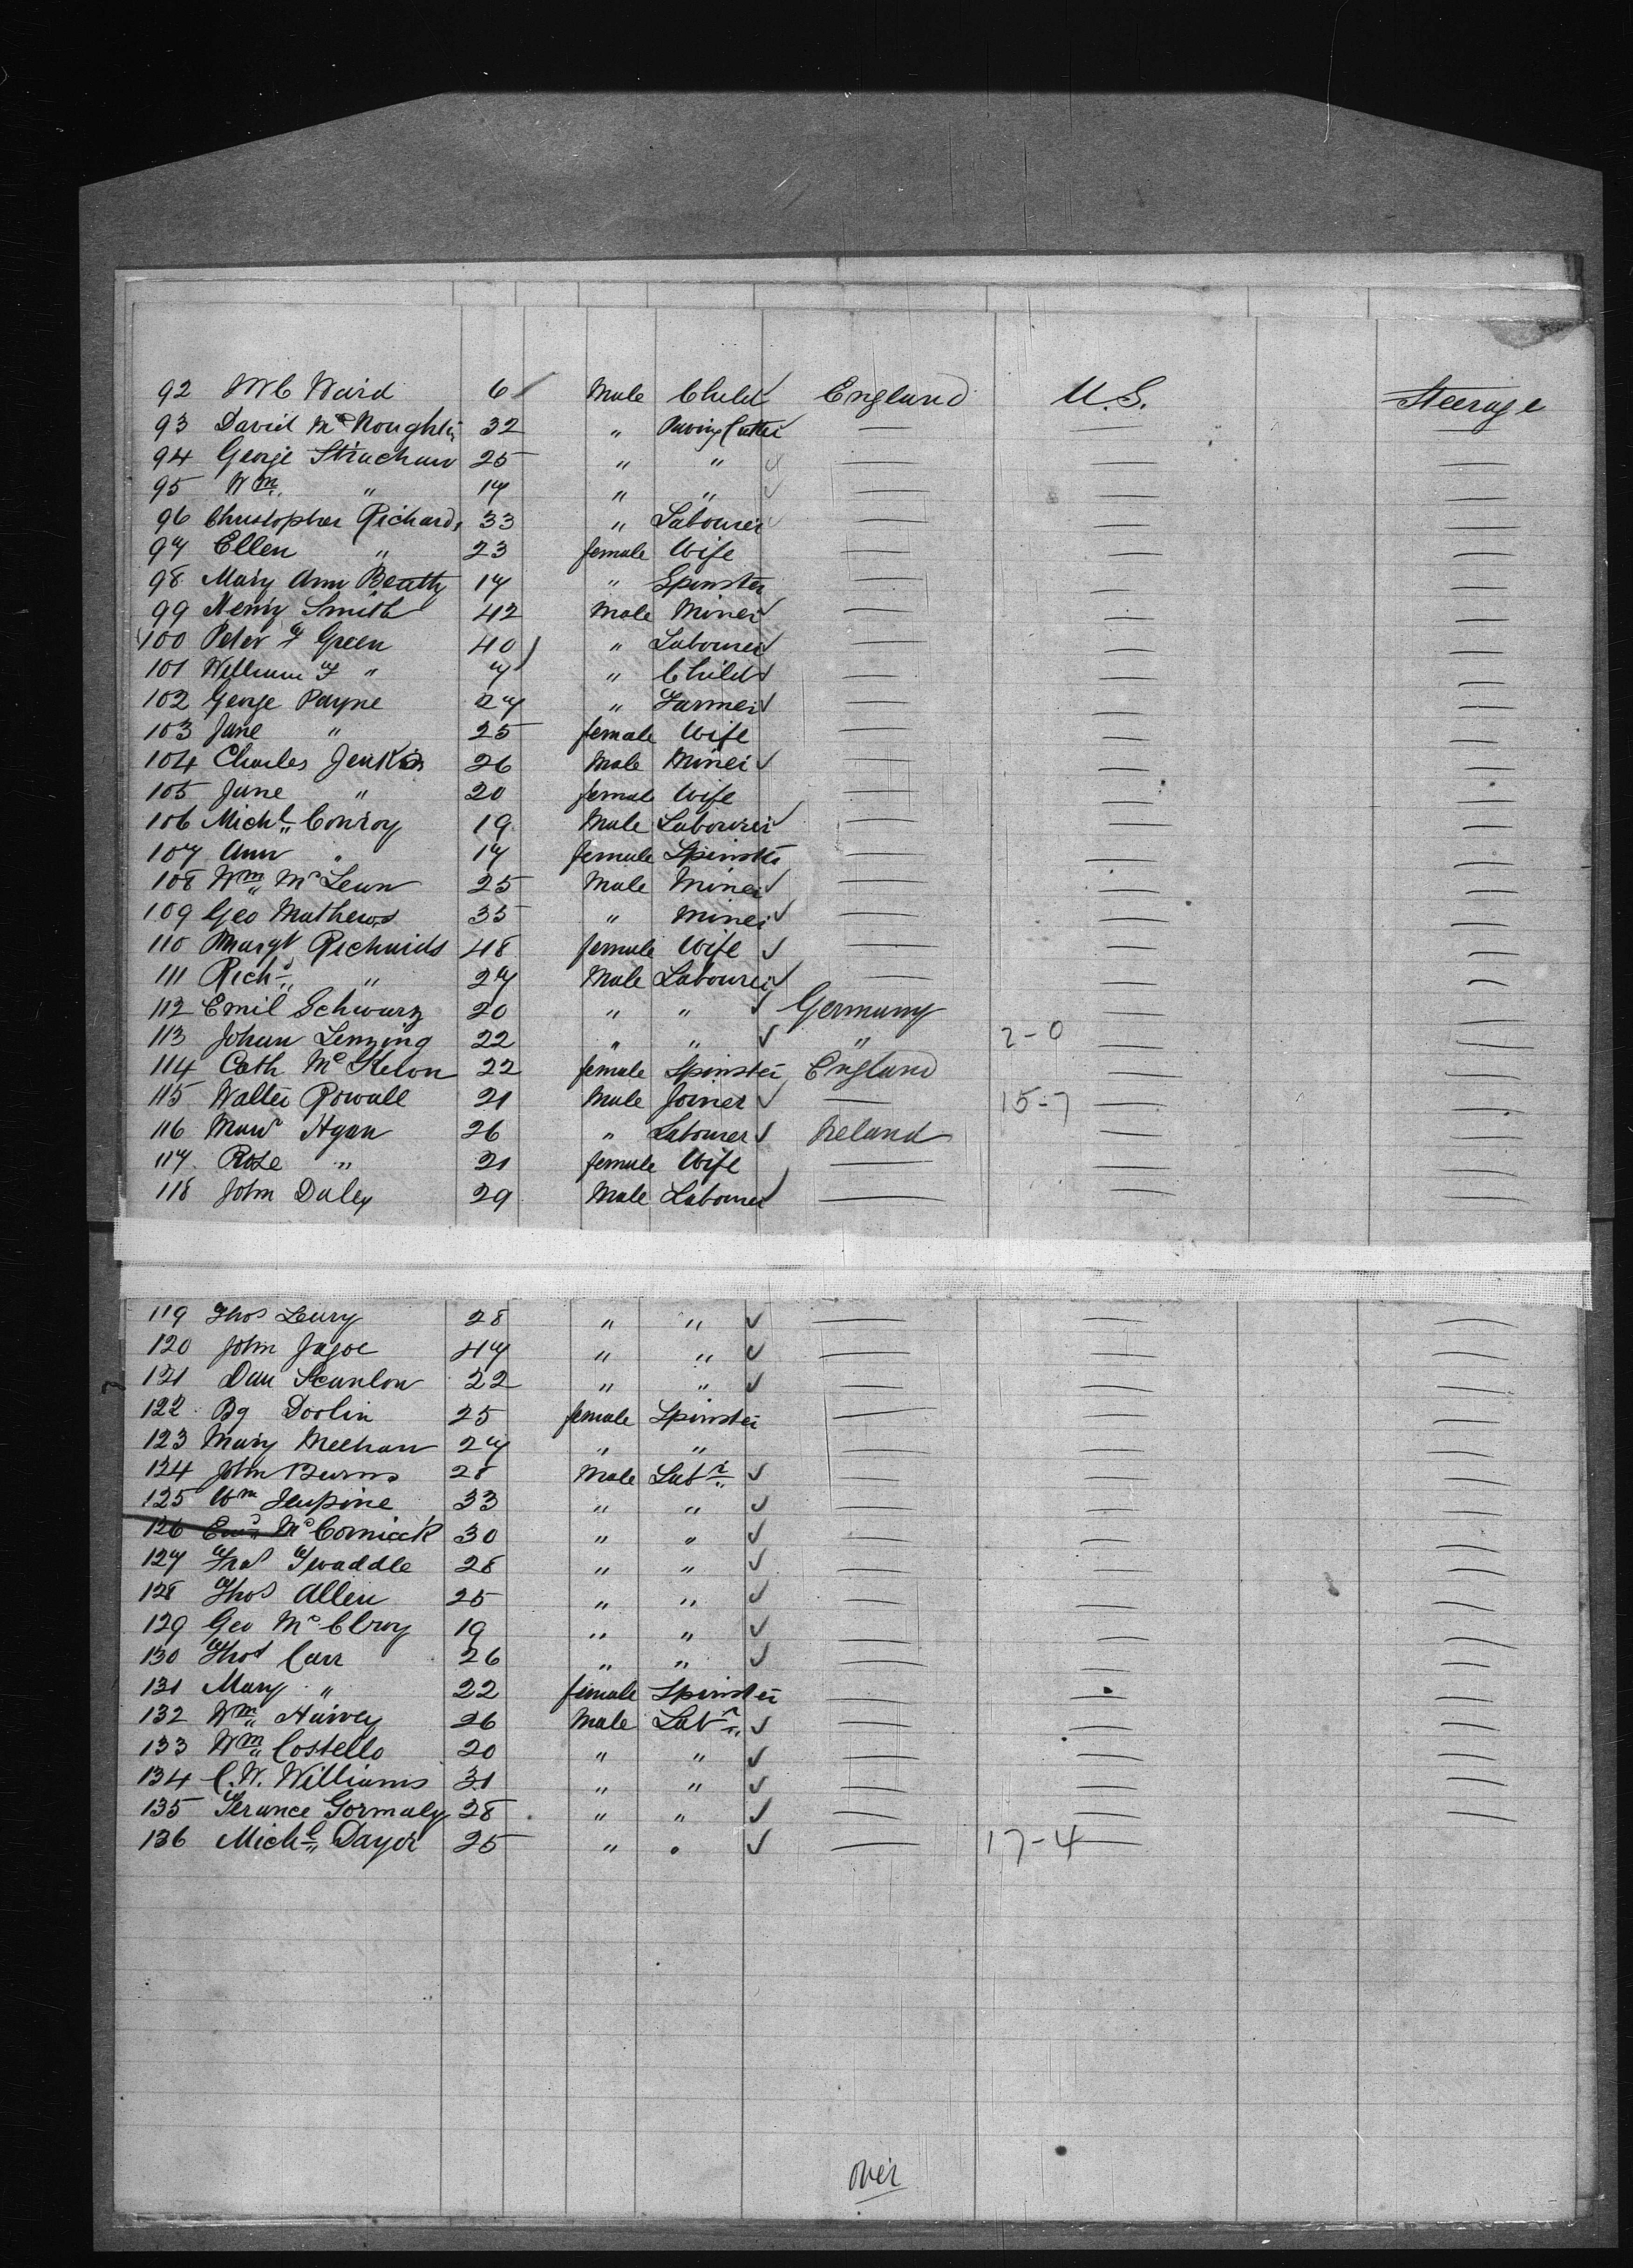 92 Ward 6 Male Child England U.S. Steerage
93 David Mc Noughtin 32 " Paving Cutter — — —
94 George Strachan 25 " " — — —
95 Wm " 17 " " — — —
96 Christopher Richards 33 " Labourer — — —
97 Ellen " 23 female Wife — — —
98 Mary Ann Beatty 17 " Spinster — — —
99 Henry Smith 42 Male Miner — — —
100 Peter F Green 40 " Labourer — — —
101 William F " 7 " Child — — —
102 George Payne 27 " Farmer — — —
103 Jane " 25 female Wife — — —
104 Charles Jenkins 26 Male Miner — — —
105 Jane " 20 female Wife — — —
106 Michl Conroy 19 Male Labourer — — —
107 Ann " 17 female Spinster — — —
108 Wm Mc Lean 25 Male Miner — — —
109 Geo Mathews 35 " Miner — — —
110 Margt Richards 48 female Wife — — —
111 Richd " 27 Male Labourer — — —
112 Emil Schwarz 20 " " Germany — —
113 Johan Lenzing 22 " " " 2-0 — —
114 Cath Mc 22 female Spinster England — —
115 Walter Rowall 21 Male Joiner — 15-7 — —
116 26 " Labourer Ireland — —
117 Rose " 21 female Wife — — —
118 John Daley 29 Male Labourer — — —
119 Thos Leury 28 " " — — —
120 John Jagoe 47 " " — — —
121 Dan Scanlon 22 " " — — —
122 Bg Doolin 25 female Spinster — — —
123 Mary Meehan 27 " " — — —
124 John Burns 28 Male Labr — — —
125 Wm 33 " " — — —
126 Mc Cormick 30 " " — — —
127 Twaddle 28 " " — — —
128 Thos Allen 25 " " — — —
129 Geo Mc Elroy 19 " " — — —
130 Thos Carr 26 " " — — —
131 Mary " 22 female Spinster — — —
132 Wm Harvey 26 Male Labr — — —
133 Wm Costello 20 " " — — —
134 C. W. Williams 31 " " — — —
135 Terance Gormaly 28 " " — — —
136 Michl Dayer 25 " " — 17-4 —
over